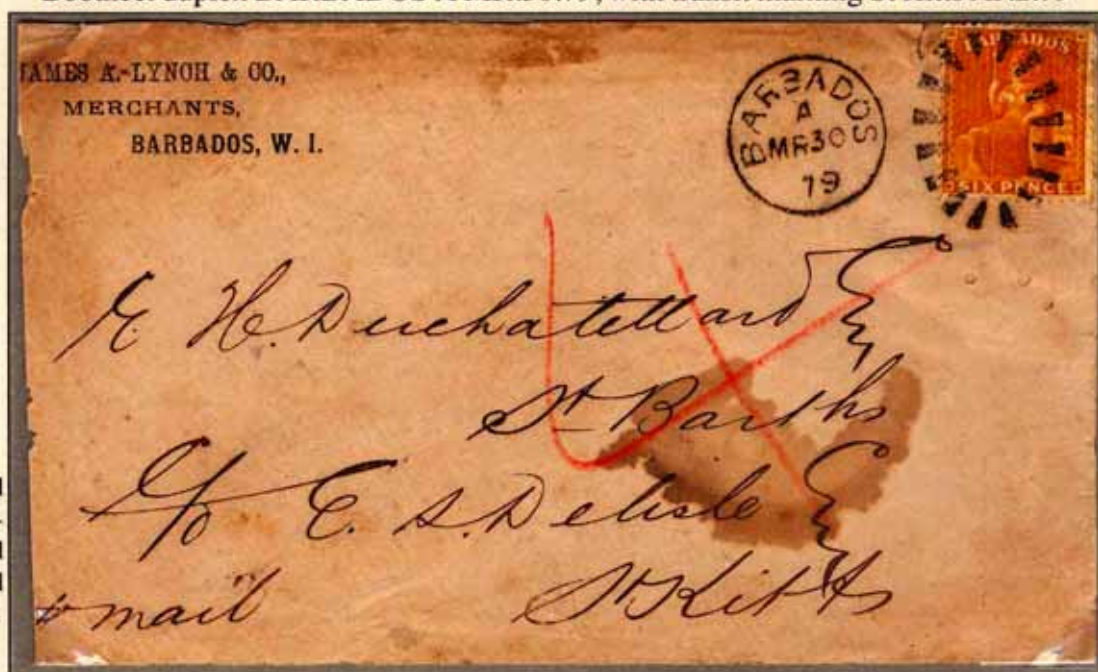 JAMES A. LYNCH & CO.,
MERCHANTS,
BARBADOS, W. I.
BARBADOS
A
MR30
79
BARBADOS
SIX PENCE
H. Duchatellard
St Barths
c/o E. S. Delisle
St Kitts
mail